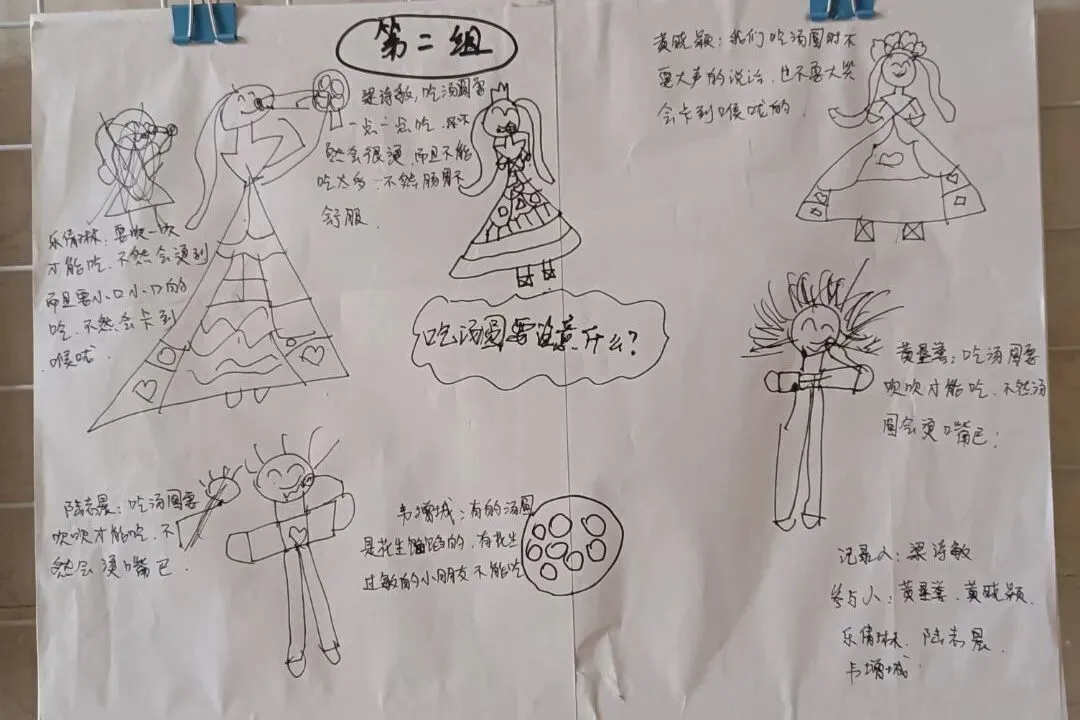 第二组
梁诗敏:吃汤圆要
一点一点吃,然不
然会很烫,而且不能
吃太多,不然肠胃不
舒服
黄晓颖:我们吃汤圆时不
要大声的说话,也不要大笑
会卡到喉咙的.
乐倩琳:要吹一吹
才能吃,不然会烫到
而且要小口小口的
吃,不然会卡到
喉咙.
吃汤圆要注意什么?
黄墨萱:吃汤圆要
吹吹才能吃,不然汤
圆会烫嘴巴;
陆志晨:吃汤圆要
吹吹才能吃,不
然会烫嘴巴.
韦增城:有的汤圆
是花生馅馅的,有花生
过敏的小朋友不能吃
记录人:梁诗敏
参与人:黄墨萱、黄晓颖、
乐倩琳、陆志晨、
韦增城.